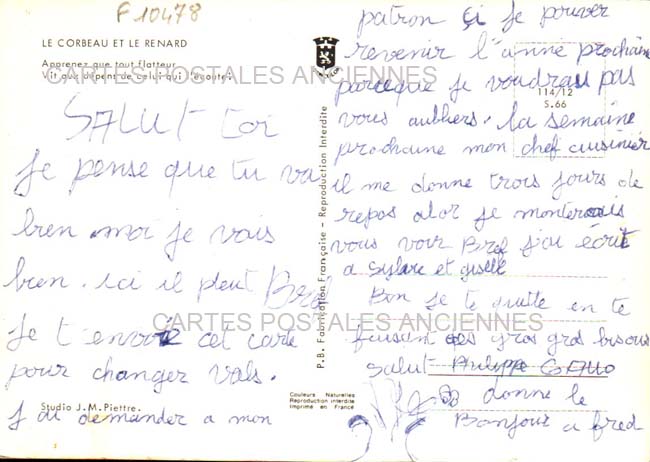 F 10478
LE CORBEAU ET LE RENARD
Apprenez que tout flatteur
Vit aux dépens de celui qui l'écoute
CARTES POSTALES ANCIENNES
SALUT toi
Je pense que tu va
bien moi je vais
bien. ici il pleut Bref
CARTES POSTALES ANCIENNES
Je t'envoie cet carte
pour changer
J'ai demander a mon
Studio J.M. Piettre.
P.B. Fabrication Française - Reproduction Interdite
Couleurs Naturelles
Reproduction interdite
Imprimé en France
114/12
S.66
patron si je pouver
revenir l'anné prochaine
parceque je voudrau pas
vous aubliers. la semaine
prochaine mon chef cuisinier
il me donne trois jours de
repos alor je monterais
vous voir Bref j'ai écrit
a Sylare et gisell
Bon je te quitte en te
faisant des gros gros bisous
Salut Philippe
donne le
Bonjour a fred